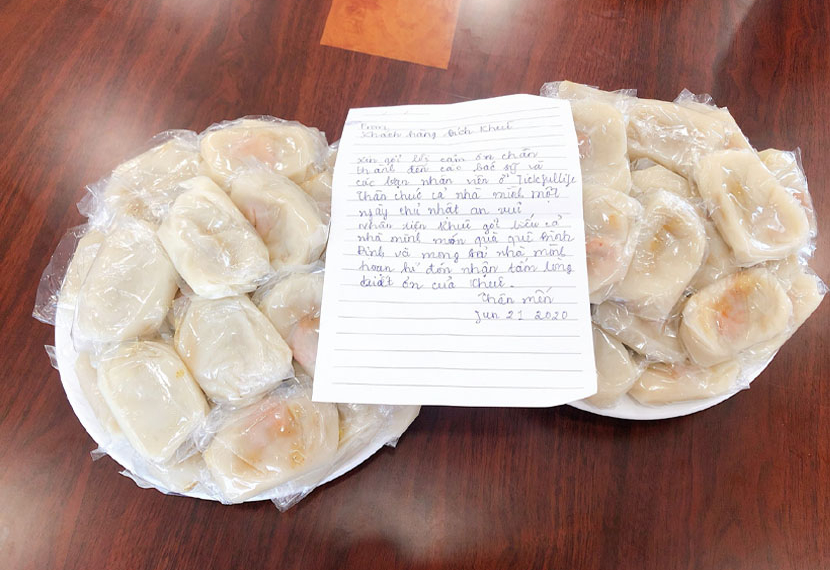 From
Khách hàng Bích Khuê
Xin gởi lời cảm ơn chân
thành đến các bác sỹ và
các bạn nhân viên ở
Thân chúc cả nhà mình một
ngày chủ nhật an vui
nhân tiện Khuê gởi biếu cả
nhà mình món quà quê Bình
Định và mong cả nhà mình
hoan hỉ đón nhận tấm lòng
biết ơn của Khuê.
Thân mến
Jun 21 2020